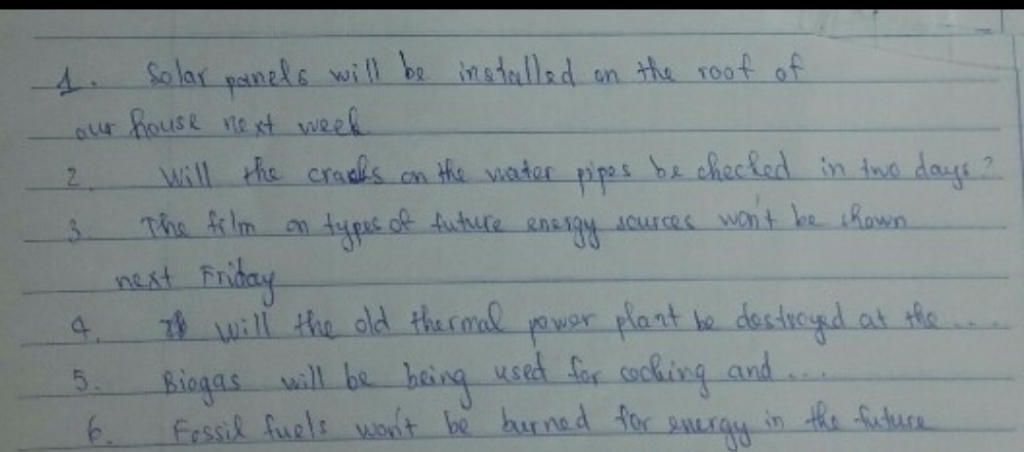 1. Solar panels will be installed on the roof of
our house next week
2. Will the cracks on the water pipes be checked in two days?
3. The film on types of future energy sources won't be shown
next Friday
4. will the old thermal power plant be destroyed at the ....
5. Biogas will be being used for cooking and ...
6. Fossil fuels won't be burned for energy in the future